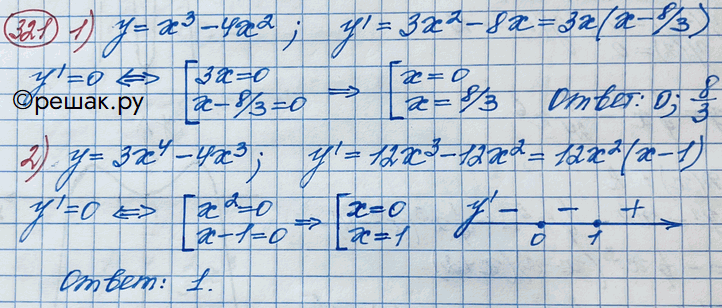 321 1) y = x³ - 4x²; y' = 3x² - 8x = 3x(x - 8/3)
y' = 0 ⇔ [ 3x = 0 ⇒ [ x = 0
x - 8/3 = 0 x = 8/3 Ответ: 0; 8/3
@решак.ру
2) y = 3x⁴ - 4x³; y' = 12x³ - 12x² = 12x²(x - 1)
y' = 0 ⇔ [ x² = 0 ⇒ [ x = 0 y' - - +
x - 1 = 0 x = 1 0 1
Ответ: 1.